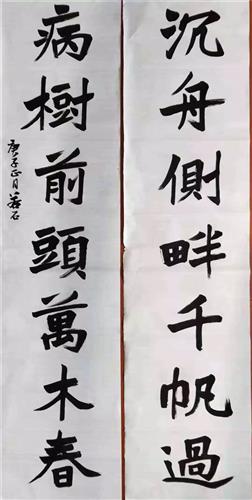 沉舟側畔千帆過
病樹前頭萬木春
庚子正月若石